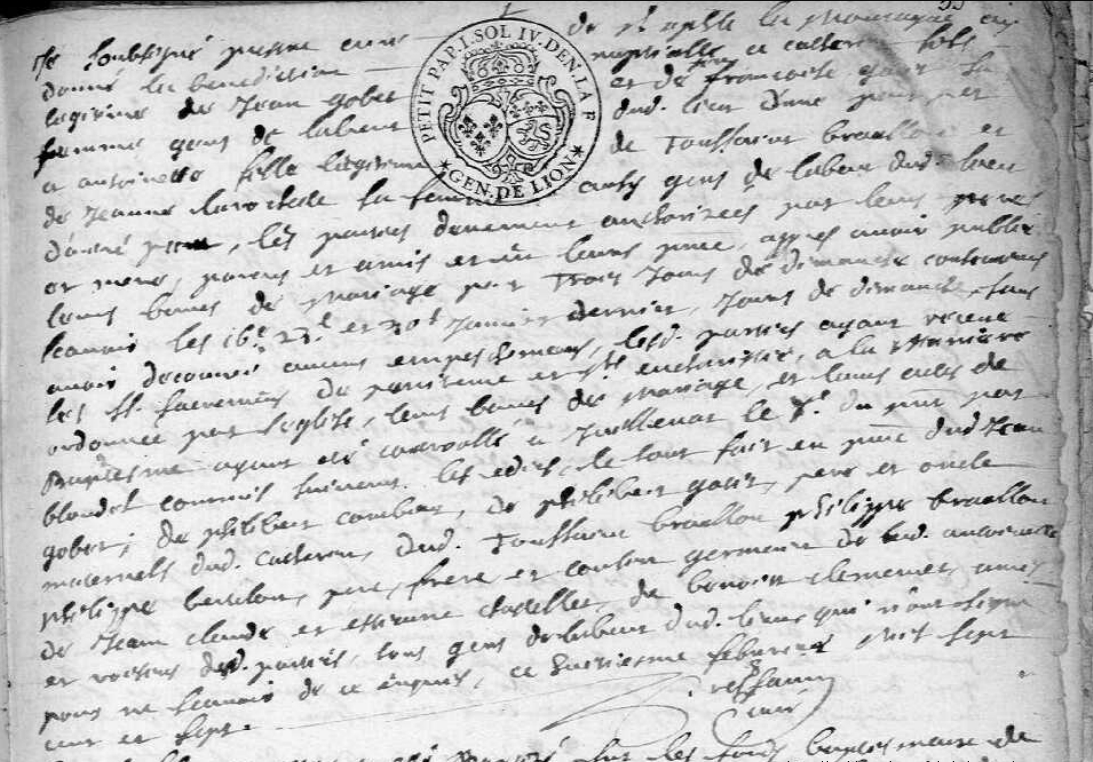 53
Je soubsigné prestre curé de St la montagne ay
donné la benediction nuptialle a catherin fils
legitime de Jean gobet et de françoise gouit sa
femme gens de labeur dud. lieu d'une part et
a antoinette fille legitime de Toussaint braillon et
de Jeanne larochette sa femme aussy gens de labeur dud. lieu
d'autre part, les parties deuement authorizees par leurs peres
et mere, parens et amis et en leurs pnce, appres avoir publié
leurs bans de Mariage par Trois Jours de dimanche continuels
scavoir les 16e. 23e et 30e Janvier dernier, Jours de dimanche, sans
avoir decouvert aucuns empeschemens, lesd. parties ayant receue
les SS. sacremens de penitence et ste eucharistie, a la Maniere
ordonnée par l'eglise, leurs bans de mariage, et leurs actes de
Baptesme ayant esté controllé a Jullienas le du pnt par
blondel commis suivant les edits, le tout fait en pnce dud Jean
gobet, de philibert combier, de philibert gouit, pere et oncle
maternels dud. catherin, dud. Toussaint braillon philippe braillon
philippe berthon, pere, frere et cousin germain de lad. antoinette
de Jean claude et estienne chatellet, de benoist clement, amis
et voisins desd. parties, tous gens de labeur dud. lieu qui n'ont signé
pour ne scavoir de ce enquis, ce huictiesme febvrier Mil sept
cent et sept.
curé
sur les fonds baptismaux de
PETIT PAP. 1. SOL IV. DEN. LA F
GEN. DE LION